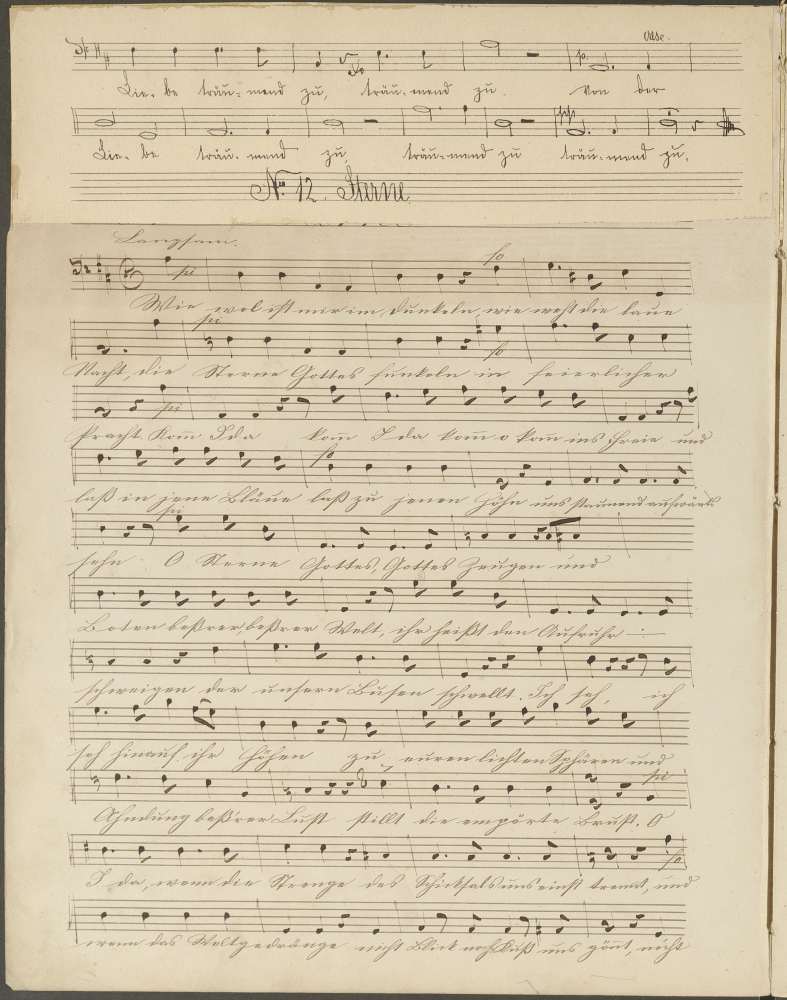 Oase.
Lie- be träu- mend zu, träu- mend zu. Von der
Lie- be träu- mend zu, träu- mend zu träu- mend zu.
No 12. Sterne.
Langsam.
Wie wol ist mir im Dunkeln, wie weht die laue
Nacht, die Sterne Gottes funkeln in feierlicher
Pracht. Kom̄ Ida kom̄ Ida kom̄ o kom̄ ins Freie und
laß in jene Bläue laß zu jenen Höhn uns staunend aufwärts
sehn. O Sterne Gottes, Gottes Zeugen und
Boten beßrer, beßrer Welt, ihr heißt den Aufruhr
schweigen der unsern Busen schwellt. Ich seh, ich
seh hinauf ihr Höhen zu euren lichten Sphären und
Ahndung beßrer Lust stillt die empörte Brust. O
Ida, wenn die Strenge des Schicksals uns einst trennt, und
wenn das Weltgedränge nicht Blick noch Kuß uns gönt, nicht